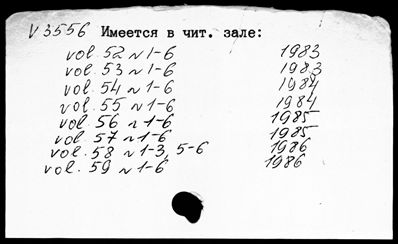 V 3556 Имеется в чит. зале:
vol. 52 N 1-6 1983
vol. 53 N 1-6 1983
vol. 54 N 1-6 1984
vol. 55 N 1-6 1984
vol. 56 N 1-6 1985
vol. 57 N 1-6 1985
vol. 58 N 1-3, 5-6 1986
vol. 59 N 1-6 1986